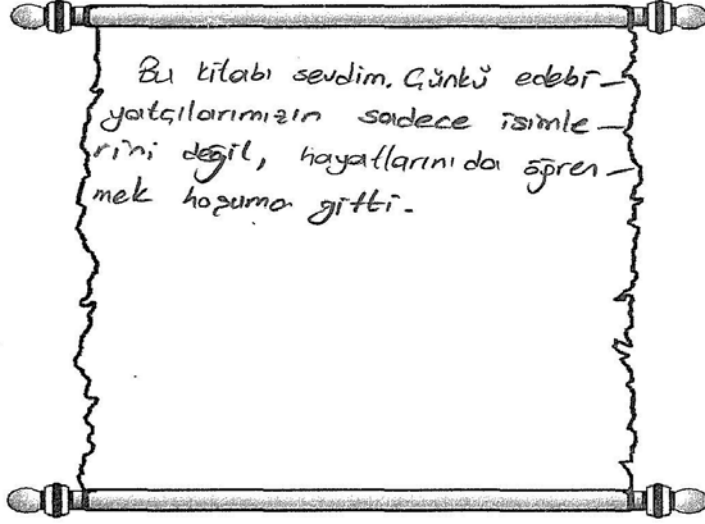 Bu kitabı sevdim. Çünkü edebi-
yatçılarımızın sadece isimle-
rini değil, hayatlarını da öğren-
mek hoşuma gitti.